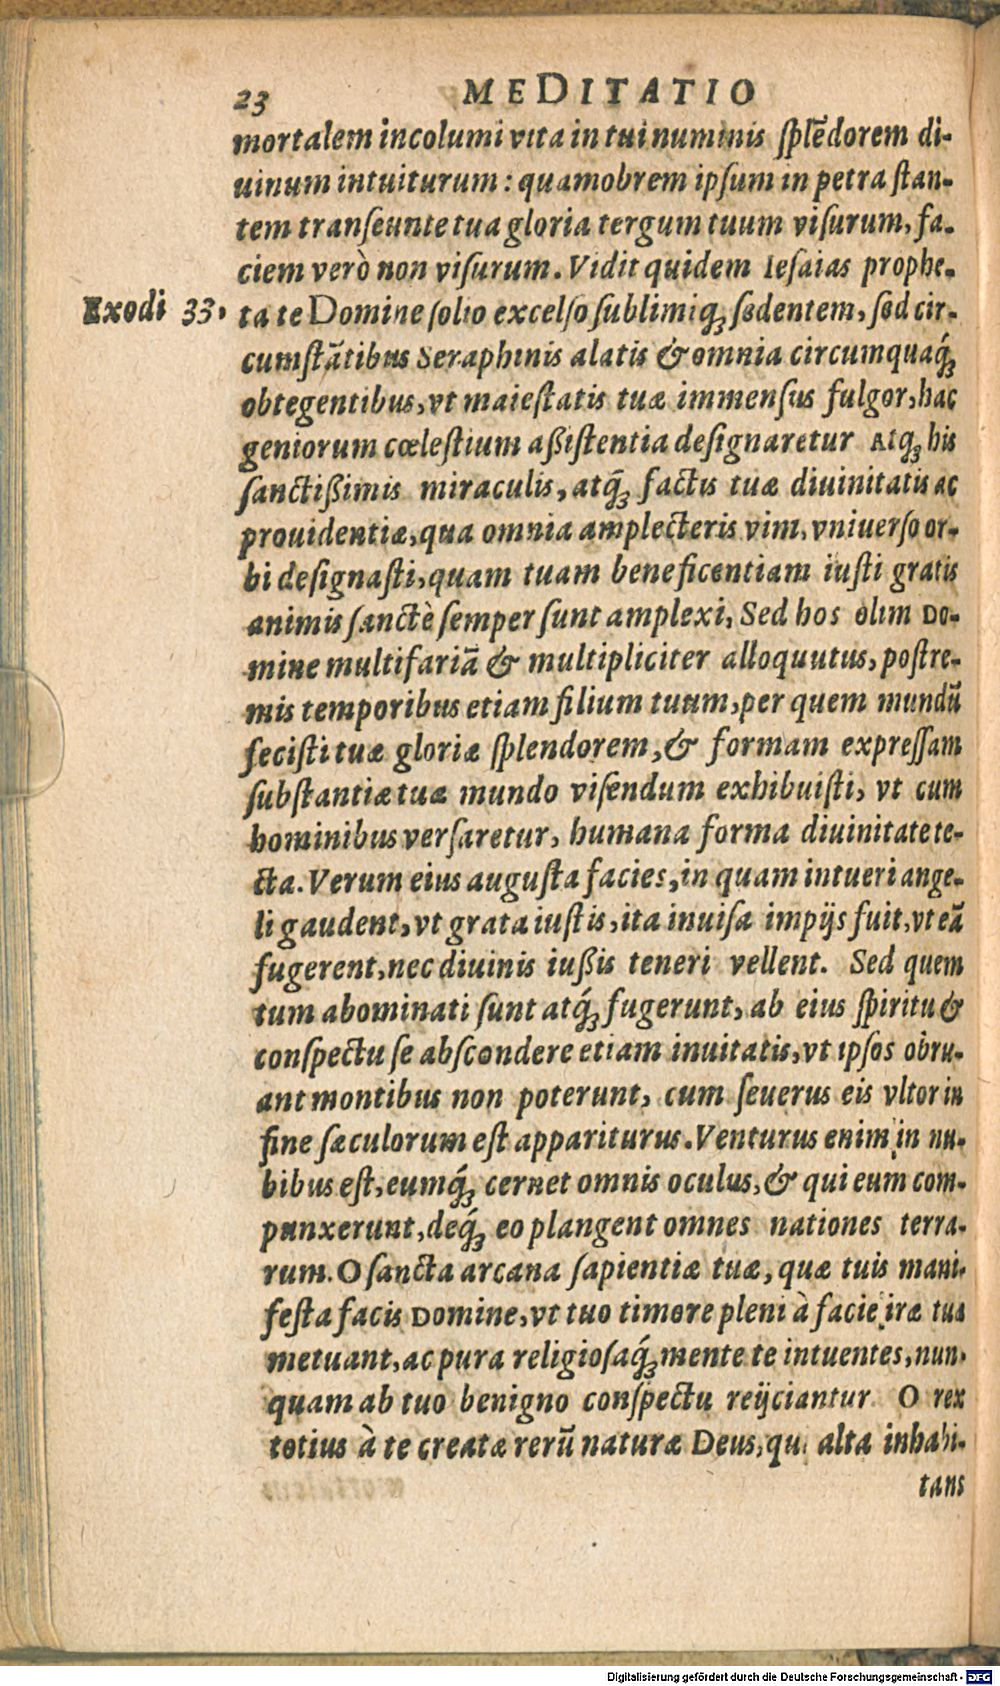 23 MEDITATIO
mortalem incolumi vita in tui numinis ſplẽdorem di-
uinum intuiturum: quamobrem ipſum in petra ſtan-
tem tranſeunte tua gloria tergum tuum viſurum, fa-
ciem verò non viſurum. Vidit quidem Ieſaias prophe-
Exodi 33. ta te Domine ſolio excelſo ſublimiq́; ſedentem, ſed cir-
cumſtãtibus Seraphinis alatis & omnia circumquaq́;
obtegentibus, vt maieſtatis tuæ immenſus fulgor, hac
geniorum cœleſtium aßiſtentia deſignaretur Atq; his
ſanctißimis miraculis, atq́; factis tuæ diuinitatis ac
prouidentiæ, qua omnia amplecteris vim, vniuerſo or-
bi deſignaſti, quam tuam beneficentiam iuſti gratis
animis ſanctè ſemper ſunt amplexi, Sed hos olim Do-
mine multifariã & multipliciter alloquutus, poſtre-
mis temporibus etiam filium tuum, per quem mundũ
feciſti tuæ gloriæ ſplendorem, & formam expreſſam
ſubſtantiæ tuæ mundo viſendum exhibuiſti, vt cum
hominibus verſaretur, humana forma diuinitate te-
cta. Verum eius auguſta facies, in quam intueri ange-
li gaudent, vt grata iuſtis, ita inuiſa impijs fuit, vt eã
fugerent, nec diuinis iußis teneri vellent. Sed quem
tum abominati ſunt atq́; fugerunt, ab eius ſpiritu &
conſpectu ſe abſcondere etiam inuitatis, vt ipſos obru-
ant montibus non poterunt, cum ſeuerus eis vltor in
fine ſæculorum eſt appariturus. Venturus enim in nu-
bibus eſt, eumq́; cernet omnis oculus, & qui eum com-
punxerunt, deq́; eo plangent omnes nationes terra-
rum. O ſancta arcana ſapientiæ tuæ, quæ tuis mani-
feſta facis Domine, vt tuo timore pleni à facie iræ tua
metuant, ac pura religioſaq́; mente te intuentes, nun-
quam ab tuo benigno conſpectu reijciantur O rex
totius à te creatæ rerũ naturæ Deus, qui alta inhabi-
tans
Digitalisierung gefördert durch die Deutsche Forschungsgemeinschaft - DFG